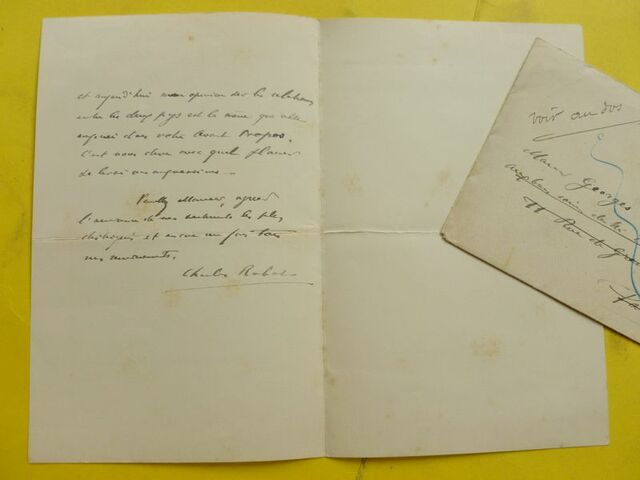 et aujourd'hui mon opinion sur les relations
entre les deux pays est la même que celle
dans votre Avant Propos.
C'est vous dire avec quel plaisir
de lirai vos impressions.
Veuillez Monsieur, agréer
l'assurance de mes sentiments les plus
distingués et encore une fois tous
mes remerciements.
Charles Rabot
voir au dos
Monsieur Georges
aux bons soins de
11 Rue de